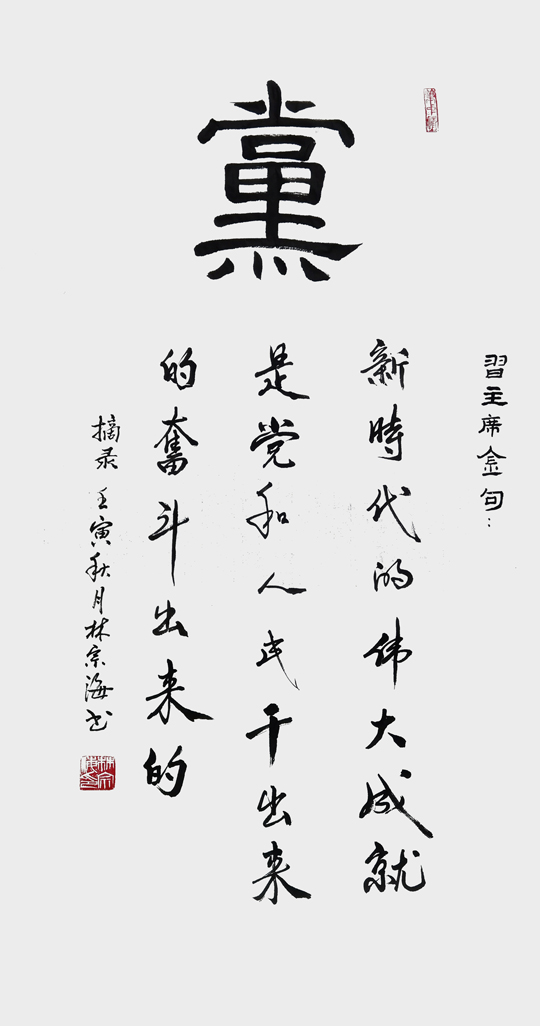 黨
習主席金句：
新時代的伟大成就
是党和人民干出来
的奮斗出来的
摘录 壬寅秋月林宗海书